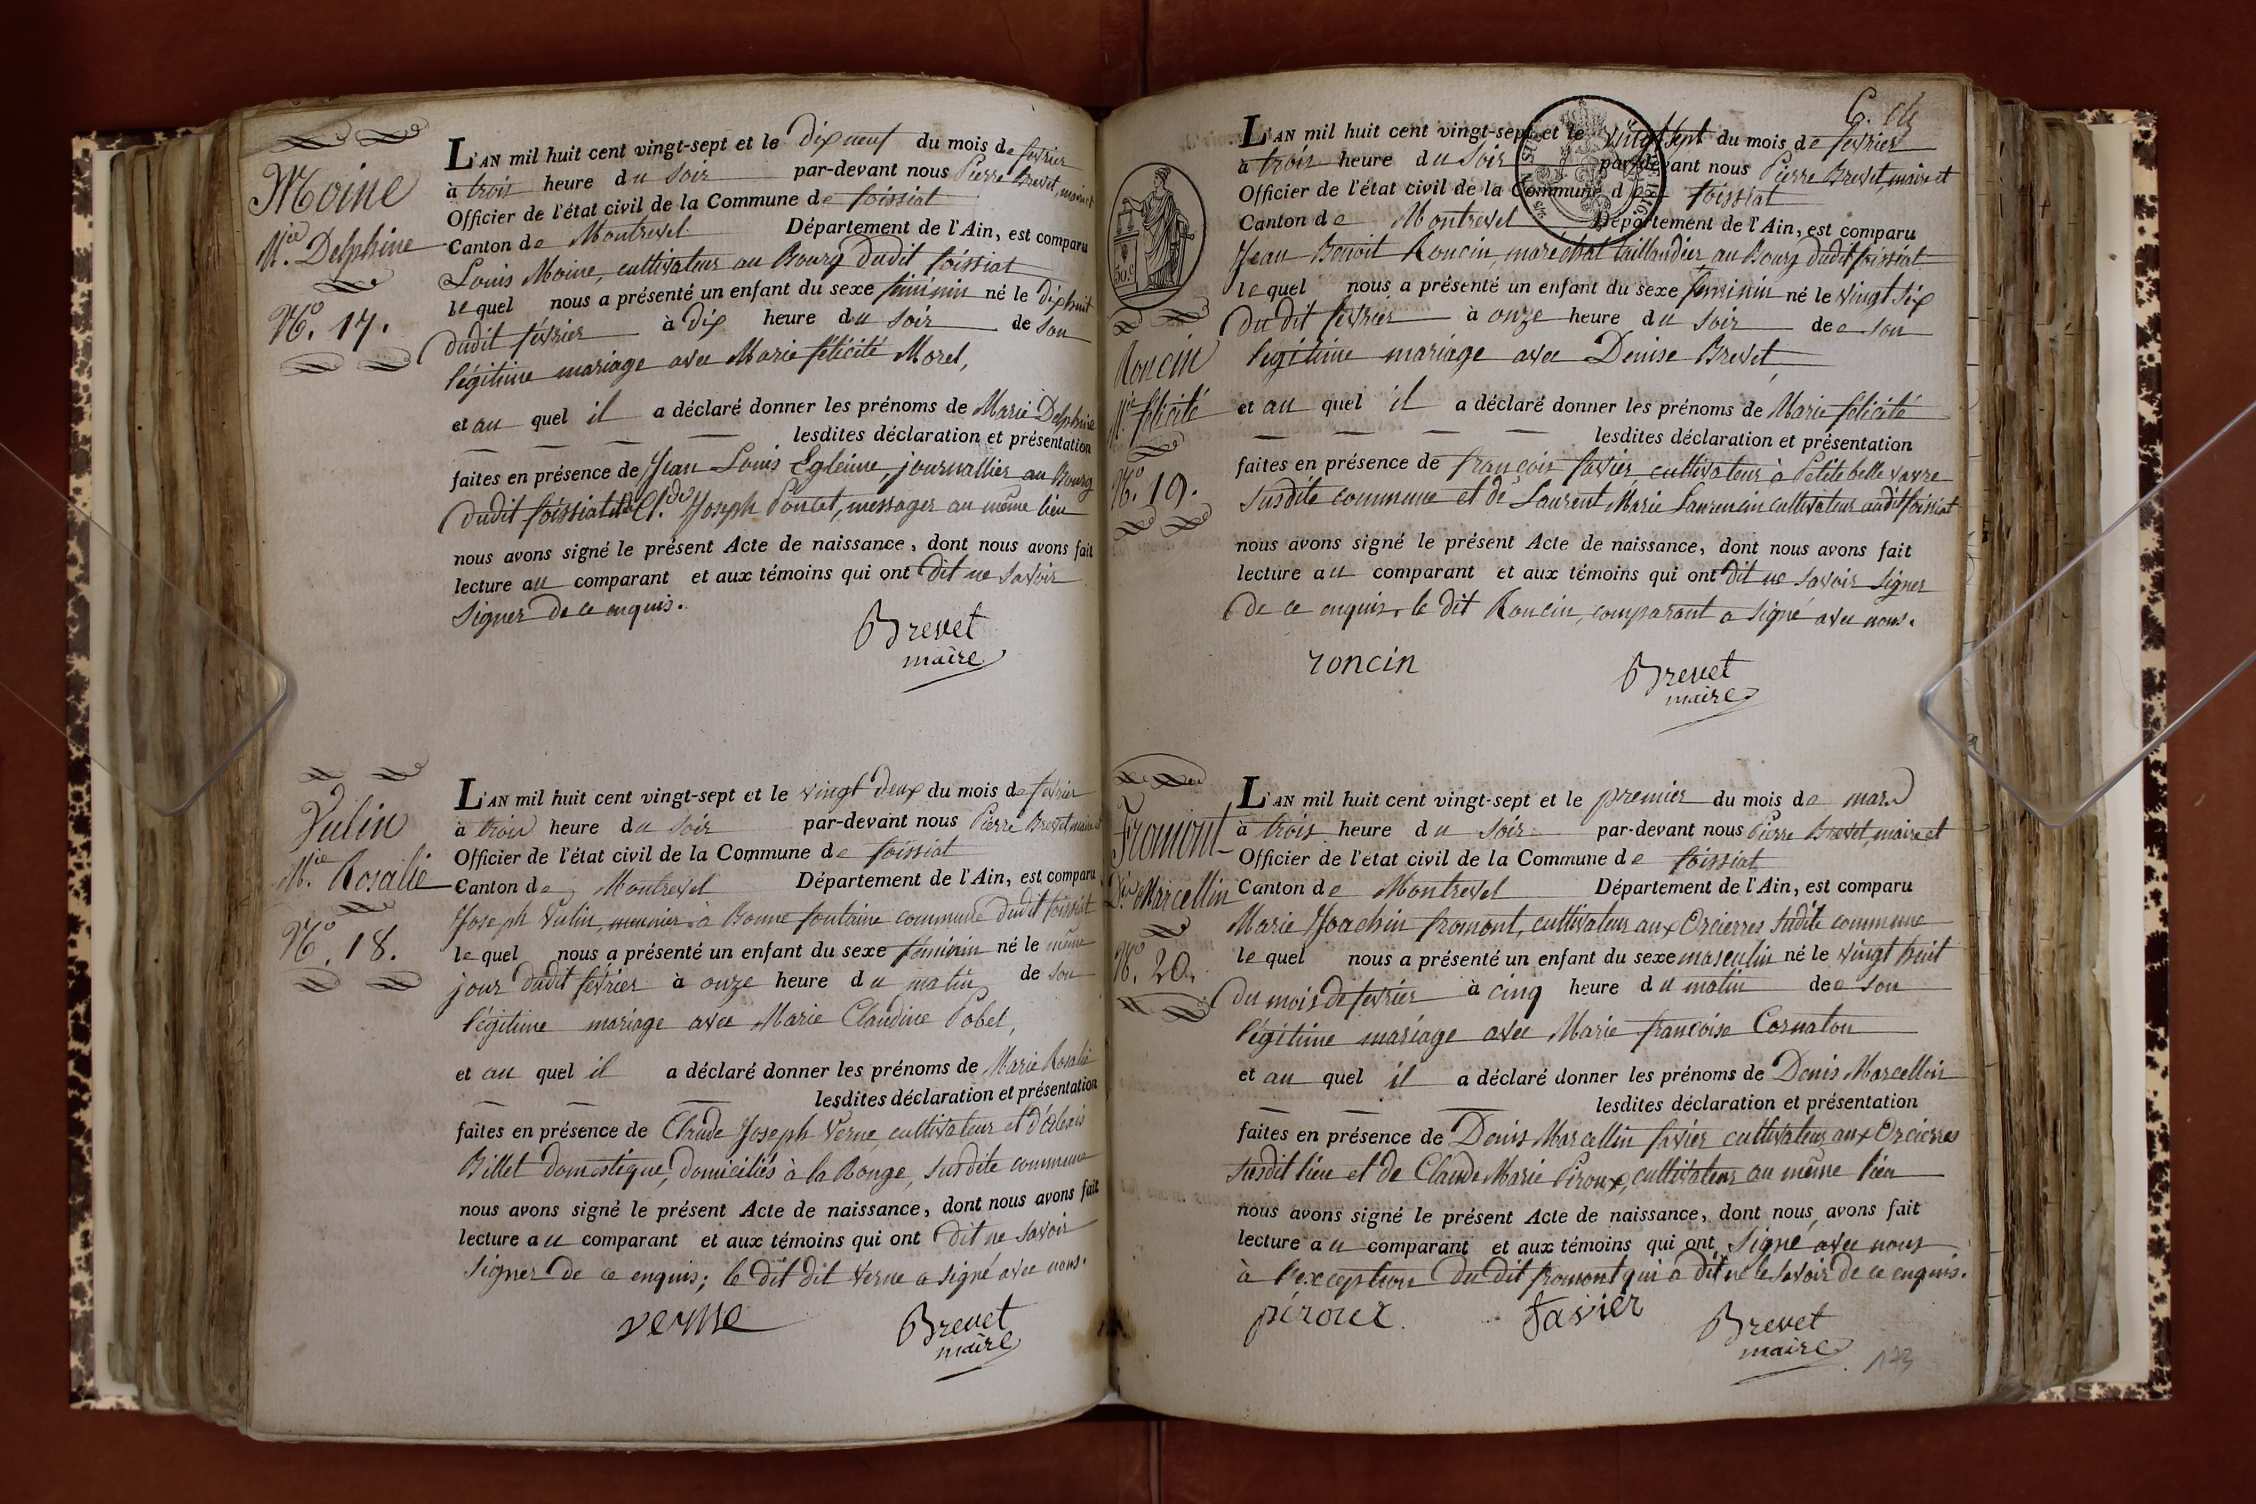 Moine
M.ie Delphine
N.o 17.
L'AN mil huit cent vingt-sept et le dix neuf du mois de fevrier
à trois heure du soir par-devant nous Pierre Brevet, maire et
Officier de l'état civil de la Commune de foissiat
Canton de Montrevel Département de l'Ain, est comparu
Louis Moine, cultivateur au Bourg dudit foissiat
lequel nous a présenté un enfant du sexe feminin né le dixhuit
dudit février à dix heure du soir de son
légitime mariage avec Marie félicité Morel,
et au quel il a déclaré donner les prénoms de Marie Delphine
lesdites déclaration et présentation
faites en présence de Jean Louis Egleine, journallier au Bourg
dudit foissiat et de Cl.de Joseph Poncet, messager au même lieu
nous avons signé le présent Acte de naissance, dont nous avons fait
lecture au comparant et aux témoins qui ont dit ne savoir
signer de ce enquis.
Brevet
maire
Vulin
M.ie Rosalie
N.o 18.
L'AN mil huit cent vingt-sept et le vingt deux du mois de fevrier
à trois heure du soir par-devant nous Pierre Brevet, maire et
Officier de l'état civil de la Commune de foissiat
Canton de Montrevel Département de l'Ain, est comparu
Joseph Vulin, meunier à Bonne fontaine commune dudit foissiat
lequel nous a présenté un enfant du sexe féminin né le même
jour dudit février à onze heure du matin de son
légitime mariage avec Marie Claudine Pobel,
et au quel il a déclaré donner les prénoms de Marie Rosalie
lesdites déclaration et présentation
faites en présence de Claude Joseph Verne, cultivateur et d'Alexis
Billet domestique, domiciliés à la Ronge, susdite commune
nous avons signé le présent Acte de naissance, dont nous avons fait
lecture au comparant et aux témoins qui ont dit ne savoir
signer de ce enquis; le dit dit Verne a signé avec nous.
verne
Brevet
maire
50.c
Roncin
M.ie félicité
N.o 19.
L'AN mil huit cent vingt-sept et le vingt sept du mois de fevrier
à trois heure du soir par-devant nous Pierre Brevet, maire et
Officier de l'état civil de la Commune de foissiat
Canton de Montrevel Département de l'Ain, est comparu
Jean Benoit Roncin, maréchal taillandier au Bourg dudit foissiat
lequel nous a présenté un enfant du sexe feminin né le vingt six
du dit fevrier à onze heure du soir de son
legitime mariage avec Denise Brevet,
et au quel il a déclaré donner les prénoms de Marie félicité
lesdites déclaration et présentation
faites en présence de françois favier, cultivateur à Petite belle vavre
susdite commune et de Laurent Marie Laurencin cultivateur audit foissiat
nous avons signé le présent Acte de naissance, dont nous avons fait
lecture au comparant et aux témoins qui ont dit ne savoir signer
de ce enquis, le dit Roncin, comparant a signé avec nous.
roncin
Brevet
maire
Fromont
D.is Marcellin
N.o 20.
L'AN mil huit cent vingt-sept et le premier du mois de mars
à trois heure du soir par-devant nous Pierre Brevet, maire et
Officier de l'état civil de la Commune de foissiat
Canton de Montrevel Département de l'Ain, est comparu
Marie Joachin fromont, cultivateur aux Orcierres susdite commune
lequel nous a présenté un enfant du sexe masculin né le vingt huit
du mois de fevrier à cinq heure du matin de son
légitime mariage avec Marie françoise Cornaton
et au quel il a déclaré donner les prénoms de Denis Marcellin
lesdites déclaration et présentation
faites en présence de Denis Marcellin favier cultivateur aux Orcierres
susdit lieu et de Claude Marie Piroux, cultivateur au même lieu
nous avons signé le présent Acte de naissance, dont nous avons fait
lecture au comparant et aux témoins qui ont signé avec nous
à l'exception du dit fromont qui a dit ne le savoir de ce enquis.
piroux
favier
Brevet
maire